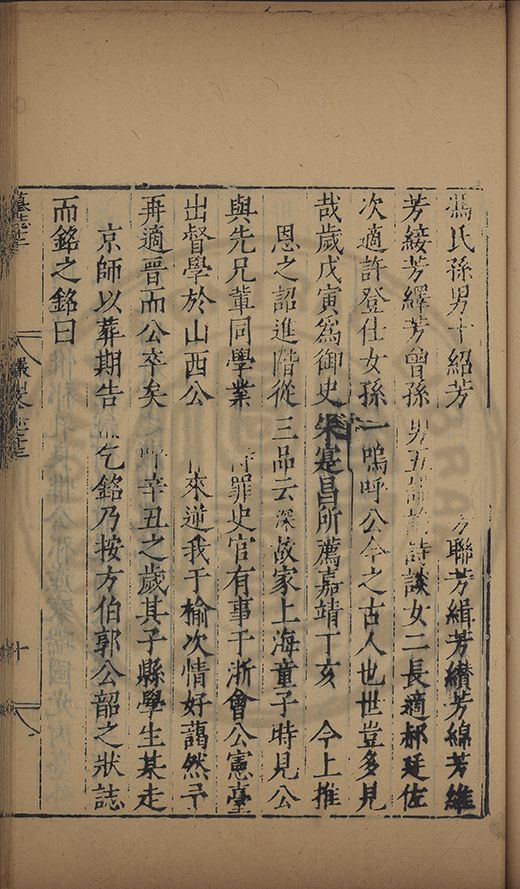 馮氏孫男十紹芳 芳聯芳緝芳纘芳綿芳維
芳綏芳繹芳曾孫男五 詩談女二長適郝廷佐
次適許登仕女孫一嗚呼公今之古人也世豈多見
哉歲戊寅為御史朱寔昌所薦嘉靖丁亥 今上推
恩之詔進階從三品云深故家上海童子時見公
與先兄輩同學業 待罪史官有事于浙會公憲臺
出督學於山西公 來逆我于榆次情好藹然予
再適晉而公卒矣 辛丑之歲其子縣學生某走
京師以葬期告 乞銘乃按方伯郭公韶之狀誌
而銘之銘曰